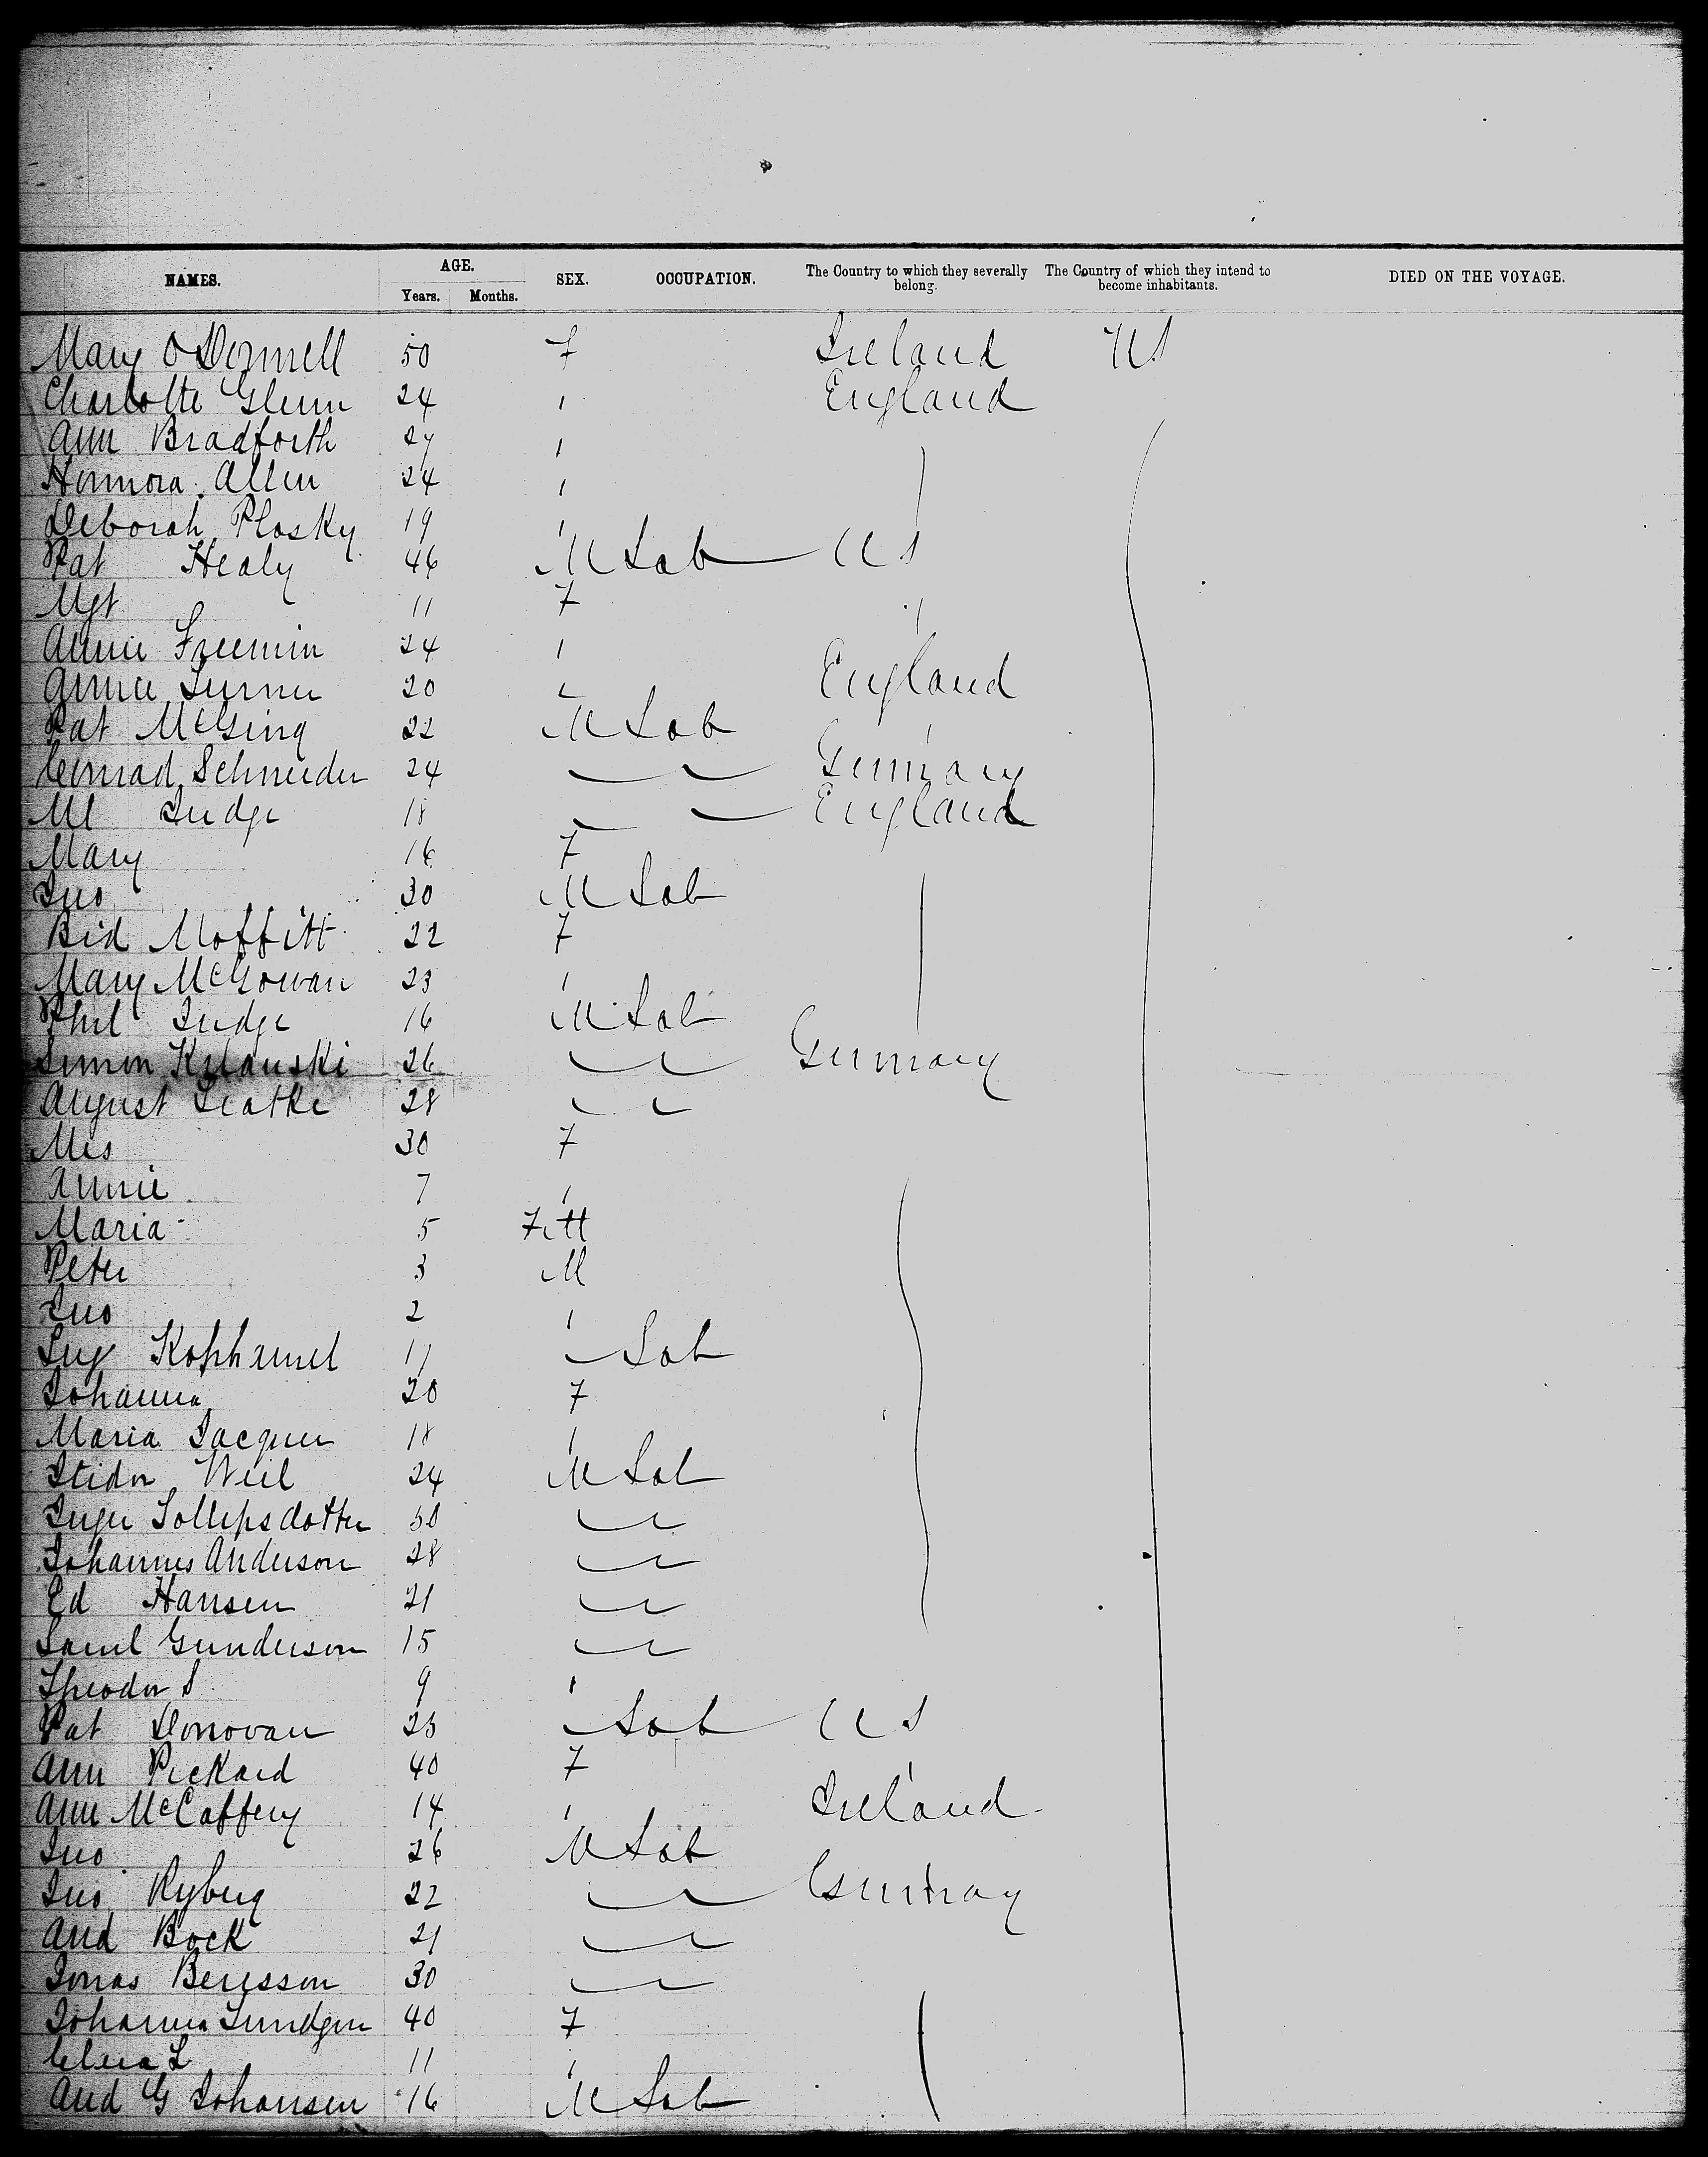 NAMES. AGE. Years. Months. SEX. OCCUPATION. The Country to which they severally belong. The Country of which they intend to become inhabitants. DIED ON THE VOYAGE.
Mary O Donnell 50 F Ireland US
Charlotte Glenn 24 " England
Ann Bradforth 24 "
Honnora Allen 24 "
Deborah Plosky 19 "
Pat Healy 46 M Lab US
Mgt 11 F "
Annie Freemin 24 "
Annie Turner 20 " England
Pat McGing 22 M Lab "
Conrad Schneider 24 " " Germany
Ml Judge 18 " " England
Mary 16 F
Jno 30 M Lab
Bid Moffitt 22 F
Mary McGowan 23 "
Phil Judge 16 M Lab
Simon 26 " " Germany
August 28 " "
Mrs 30 F
Annie 7 "
Maria 5 F
Peter 3 M
Jno 2 "
Kophamel 17 " Lab
Johanna 20 F
Maria Jacquer 18 "
Isidor Weil 24 M Lab
Inger Tollefsdotter 50 " "
Johannes Anderson 28 " "
Ed Hansen 21 " "
Saml Gunderson 15 " "
Theodor S 9 "
Pat Donovan 25 " Lab US
Ann Pickard 40 F "
Ann McCaffery 14 " Ireland
Jno 26 M Lab "
Jno Ryberg 22 " " Germany
And Bock 21 " "
Jonas Bengsson 30 " "
Johanna Lundgren 40 F
L 11 "
And G Johansen 16 M Lab